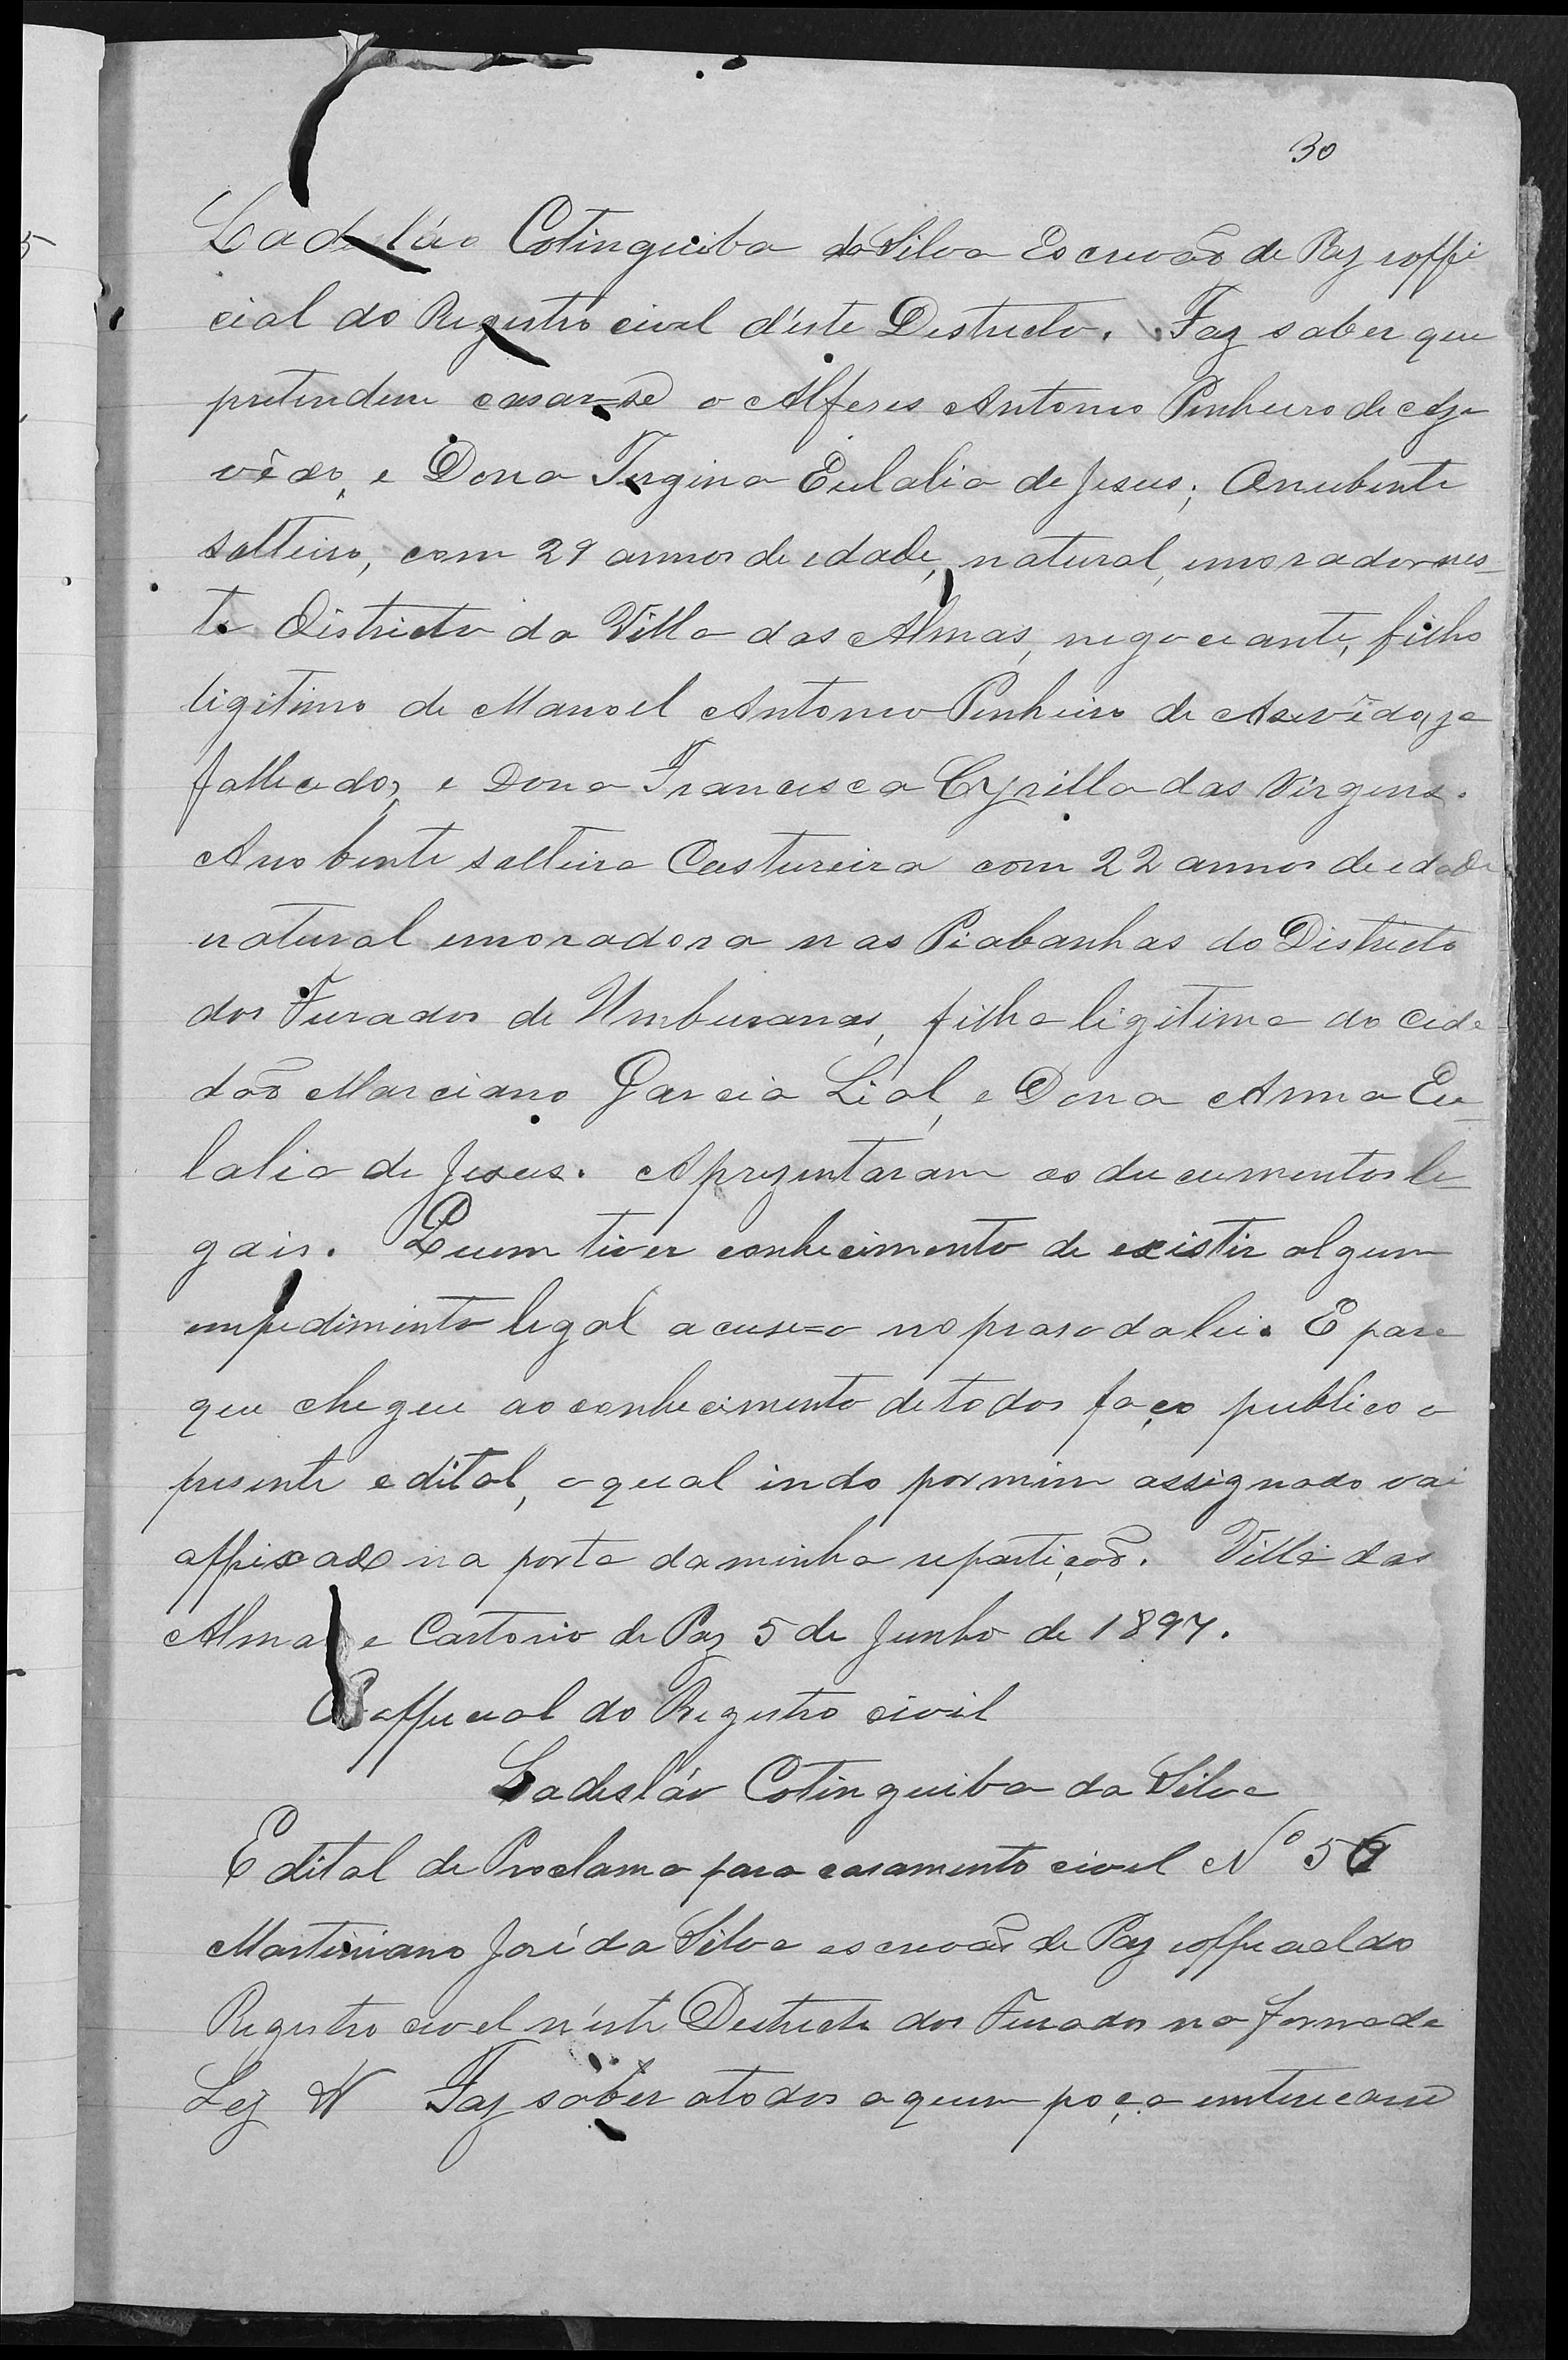 30
Ladeláo Cotinguiba da Silva Escrivão de Paz e offi
cial do Registro civel d'éste Destricto. Faz saber que
pretendem casar=se o Alferes Antonio Pinheiro de Aze
vêdo, e Dona Tirgina Eulalia de Jesus; O nubente
solteiro, com 29 annos de edade, natural, e morador nes_
te Districto da Villa das Almas, negociante, filho
ligitimo de Manoel Antonio Pinheiro de Asevêdo, ja
fallecido, e Dona Francisca Cyrilla das Virgens.
A nobente solteira Custureira com 22 annos de edade
natural e moradora nas Piabanhas do Districto
dos Furados de Umburanas, filha ligitima do Cida=
dão Marciano Garcia Lial, e Dona Anna Eu_
lalia de Jesus. Aprezentaram os ducumentos le_
gais. Quem tiver conhecimento de existir algum
impedimento legal acuse=o no praso da lei. E para
que chegue ao conhecimento de todos faço publico o
presente edital, o qual indo por mim assignado vai
affixado na porta da minha repartição. Villa das
Almas e Cartorio de Paz 5 de Junho de 1897.
O official do Registro civil
Ladisláo Cotinguiba da Silva
Edital de Proclama para casamento civel Nº 56
Martiniano José da Silva escrivão de Paz e official do
Registro civel n'éste Destricto dos Furados na forma da
Lej Faz saber a todos a quem poça enterecar